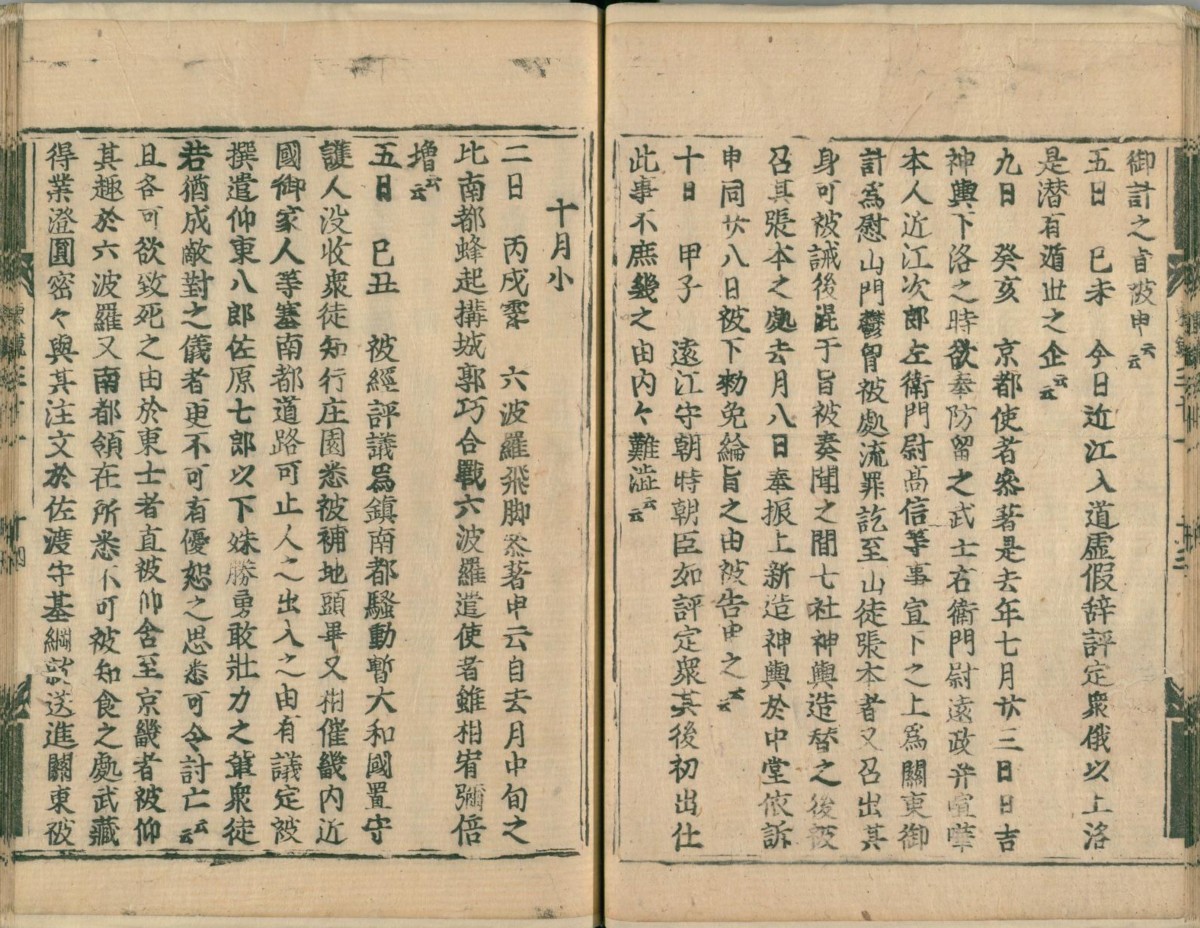 御計之旨被申云云
五日　巳未　今日近江入道虚假辞評定衆俄以上洛
是潜有遁世之企云云
九日　癸亥　京都使者参著是去年七月廿三日日吉
神輿下洛之時欲奉防留之武士右衛門尉遠政并喧嘩
本人近江次郎左衛門尉高信等事宣下之上為關東御
計為慰山門鬱胷被處流罪訖至山徒張本者又召出其
身可被誡後混于旨被奏聞之間七社神輿造替之後被
召其張本之處去月八日奉振上新造神輿於中堂依訴
申同廿八日被下勅免綸旨之由被告申之云云
十日　甲子　遠江守朝時朝臣如評定衆其後初出仕
此事不庶幾之由内々難澁云云
十月小
二日　丙戌霽　六波羅飛脚参著申云自去月中旬之
比南都蜂起搆城郭巧合戰六波羅遣使者雖相宥彌倍
増云云
五日　巳丑　被經評議爲鎮南都騒動暫大和國置守
護人没收衆徒知行庄園悉被補地頭畢又相催畿内近
國御家人等塞南都道路可止人之出入之由有議定被
撰遣仰東八郎佐原七郎以下殊勝勇敢壯力之輩衆徒
若猶成敵對之儀者更不可有優恕之思悉可令討亡云云
且各可欲致死之由於東士者直被仰含至京畿者被仰
其趣於六波羅又南都領在所悉不可被知食之處武藏
得業澄圓密々與其注文於佐渡守基綱就送進關東被